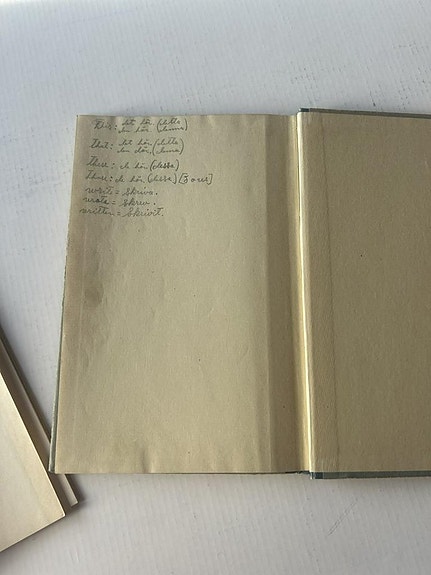 This: det här (detta)
den här (denna)
That: det här (detta)
den där (denna)
These: de här (dessa)
These: de här (dessa) [3 ones]
write = skriva.
wrote = skrev.
written = skrivit.